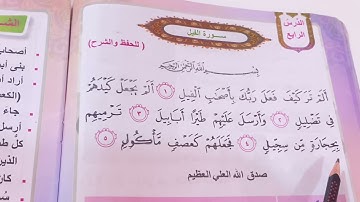 الدرس
الرابع
سورة الفيل
(للحفظ والشرح)
بِسْمِ اللَّهِ الرَّحْمَنِ الرَّحِيمِ
أَلَمْ تَرَ كَيْفَ فَعَلَ رَبُّكَ بِأَصْحَابِ الْفِيلِ ١ أَلَمْ يَجْعَلْ كَيْدَهُمْ
فِي تَضْلِيلٍ ٢ وَأَرْسَلَ عَلَيْهِمْ طَيْرًا أَبَابِيلَ ٣ تَرْمِيهِم
بِحِجَارَةٍ مِّن سِجِّيلٍ ٤ فَجَعَلَهُمْ كَعَصْفٍ مَّأْكُولٍ ٥
صدق الله العلي العظيم
أصحاب
أراد أ
جاء
أرسل
كل ط
الذين
كان